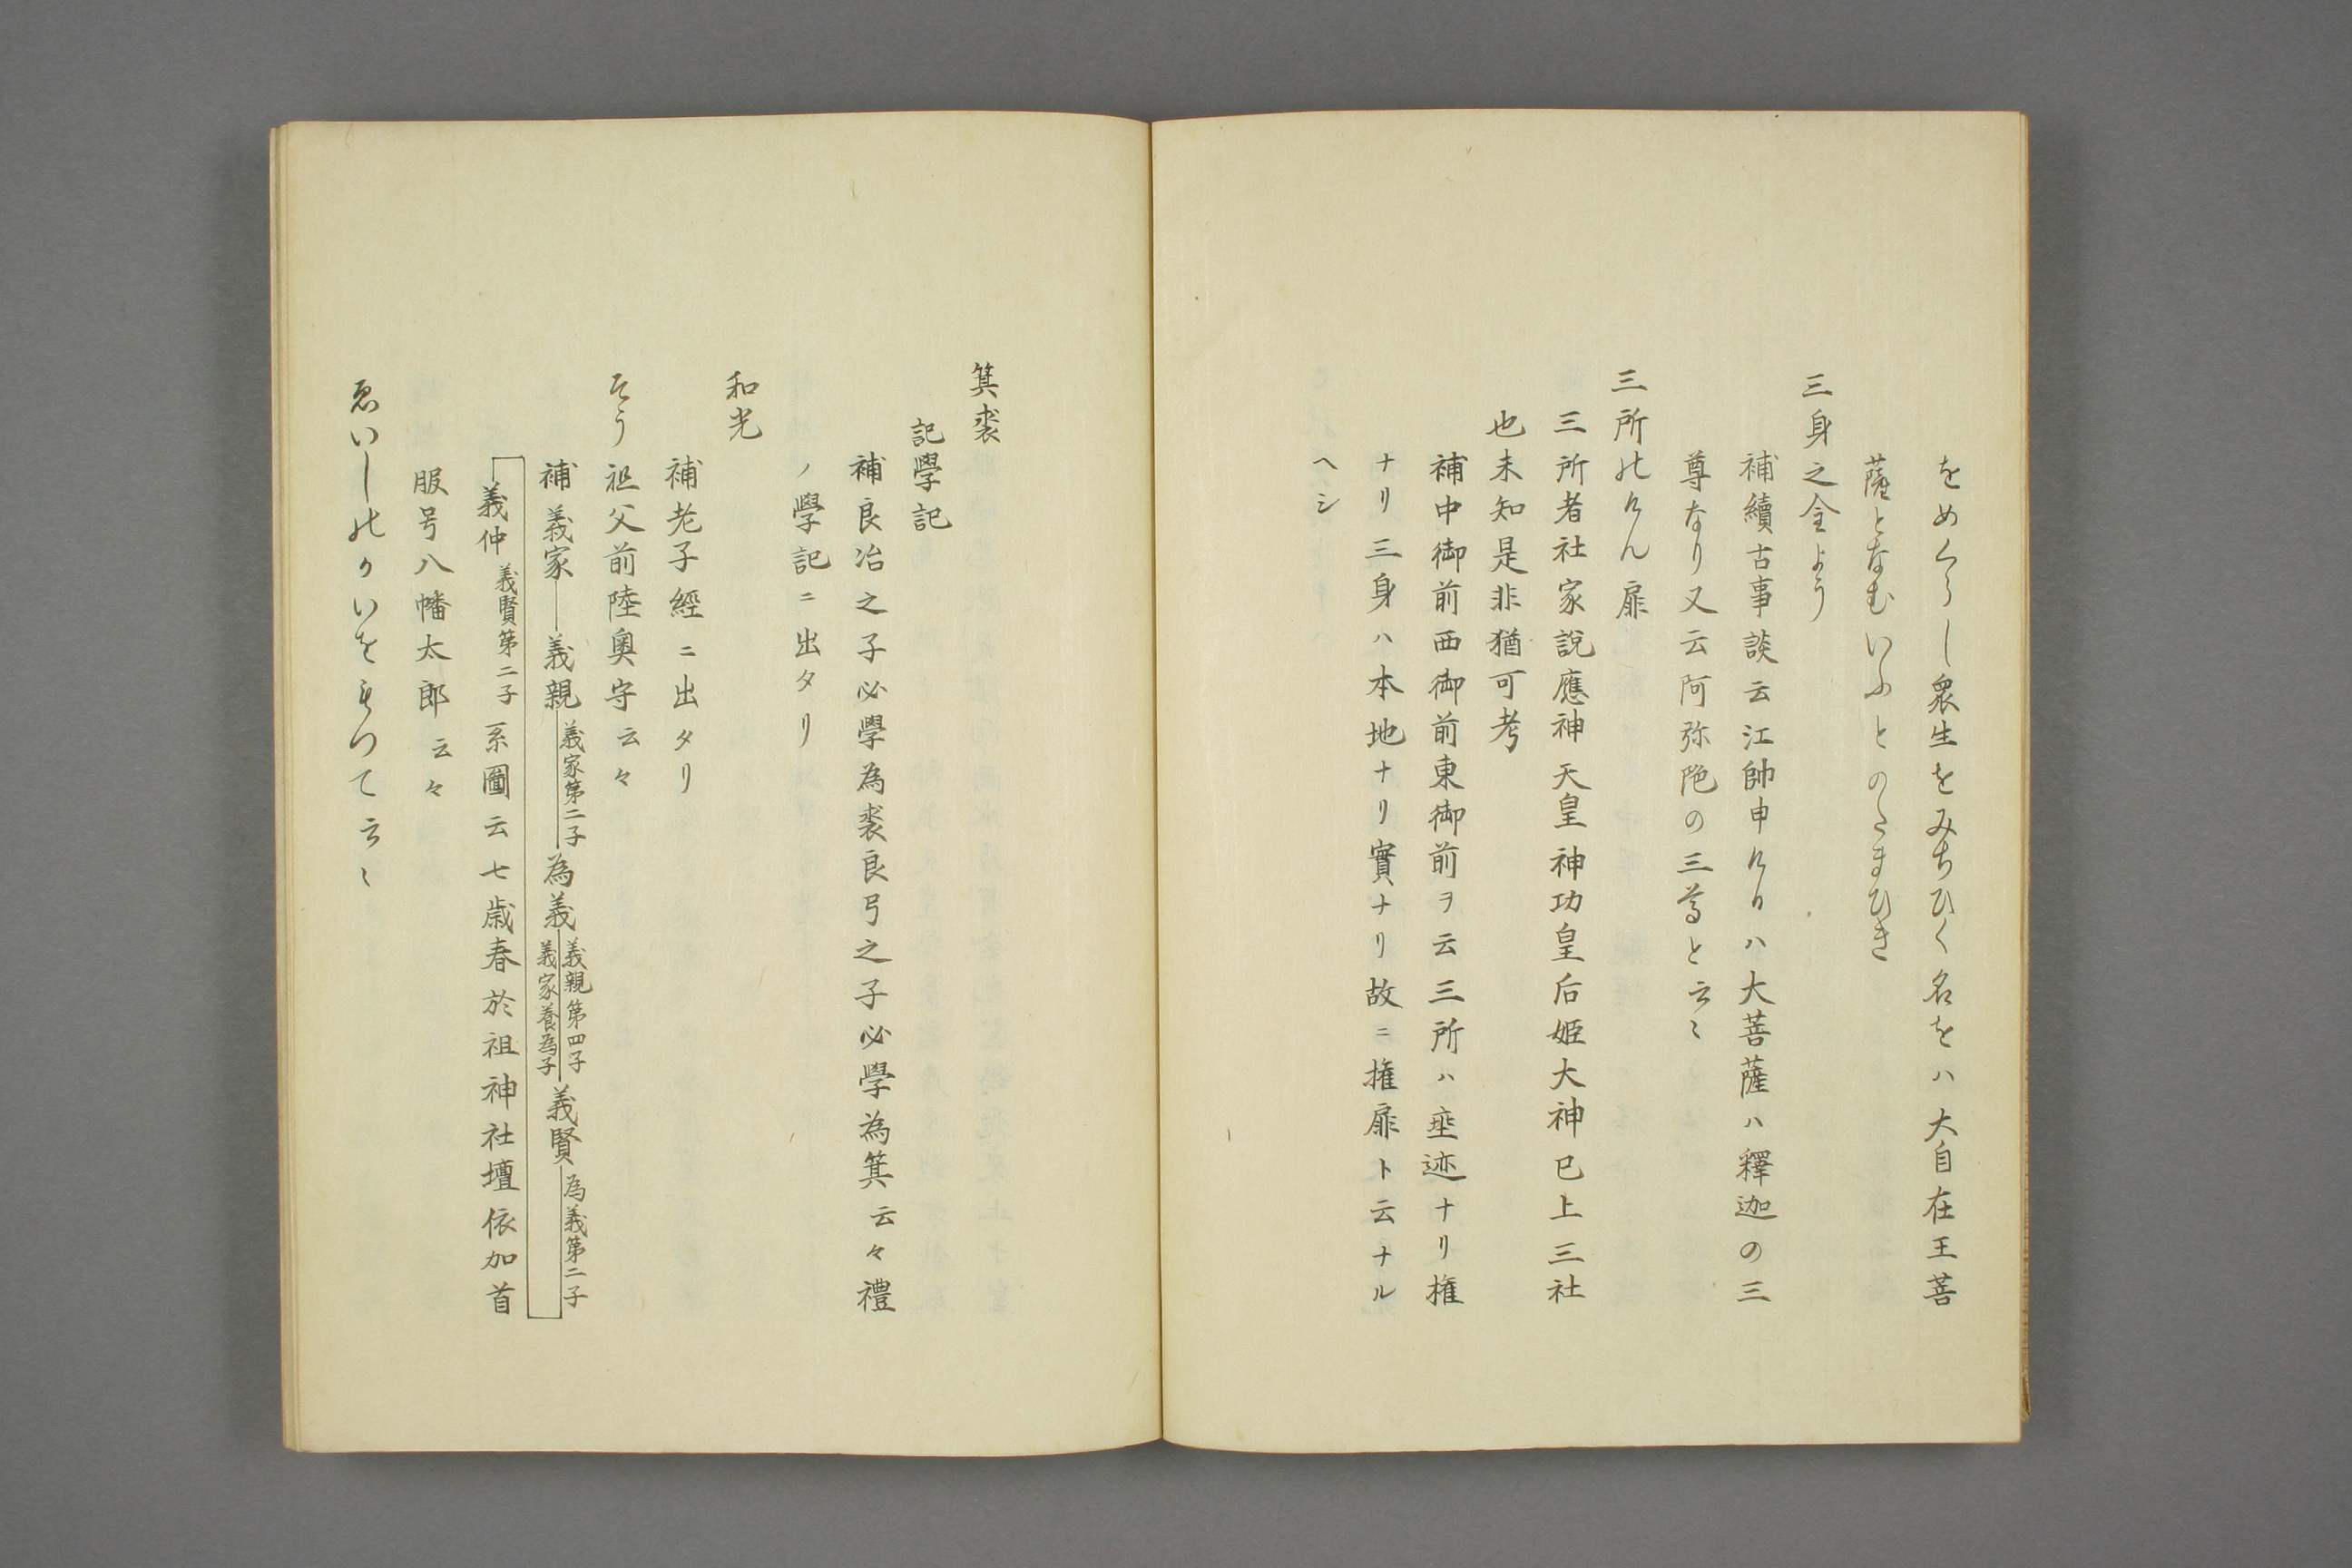 をめくらし衆生をみちひく名をハ大自在王菩
薩となむいふとのたまひき
三身之全よう
補續古事談云江帥申けるハ大菩薩ハ釋迦の三
尊なり又云阿弥陁の三尊と云〻
三所のけん扉
三所者社家説應神天皇神功皇后姫大神已上三社
也未知是非猶可考
補中御前西御前東御前ヲ云三所ハ垂迹ナリ権
ナリ三身ハ本地ナリ實ナリ故ニ権扉ト云ナル
ヘシ
箕裘
記學記
補良冶之子必學為裘良弓之子必學為箕云々禮
ノ學記ニ出タリ
和光
補老子經ニ出タリ
そう祖父前陸奥守云々
補義家 義親 義家第二子 為義 義親第四子 義家養為子 義賢 為義第二子
義仲 義賢第二子 系圖云七歳春於祖神社壇依加首
服号八幡太郎云々
ゑいしのかいをもつて云〻